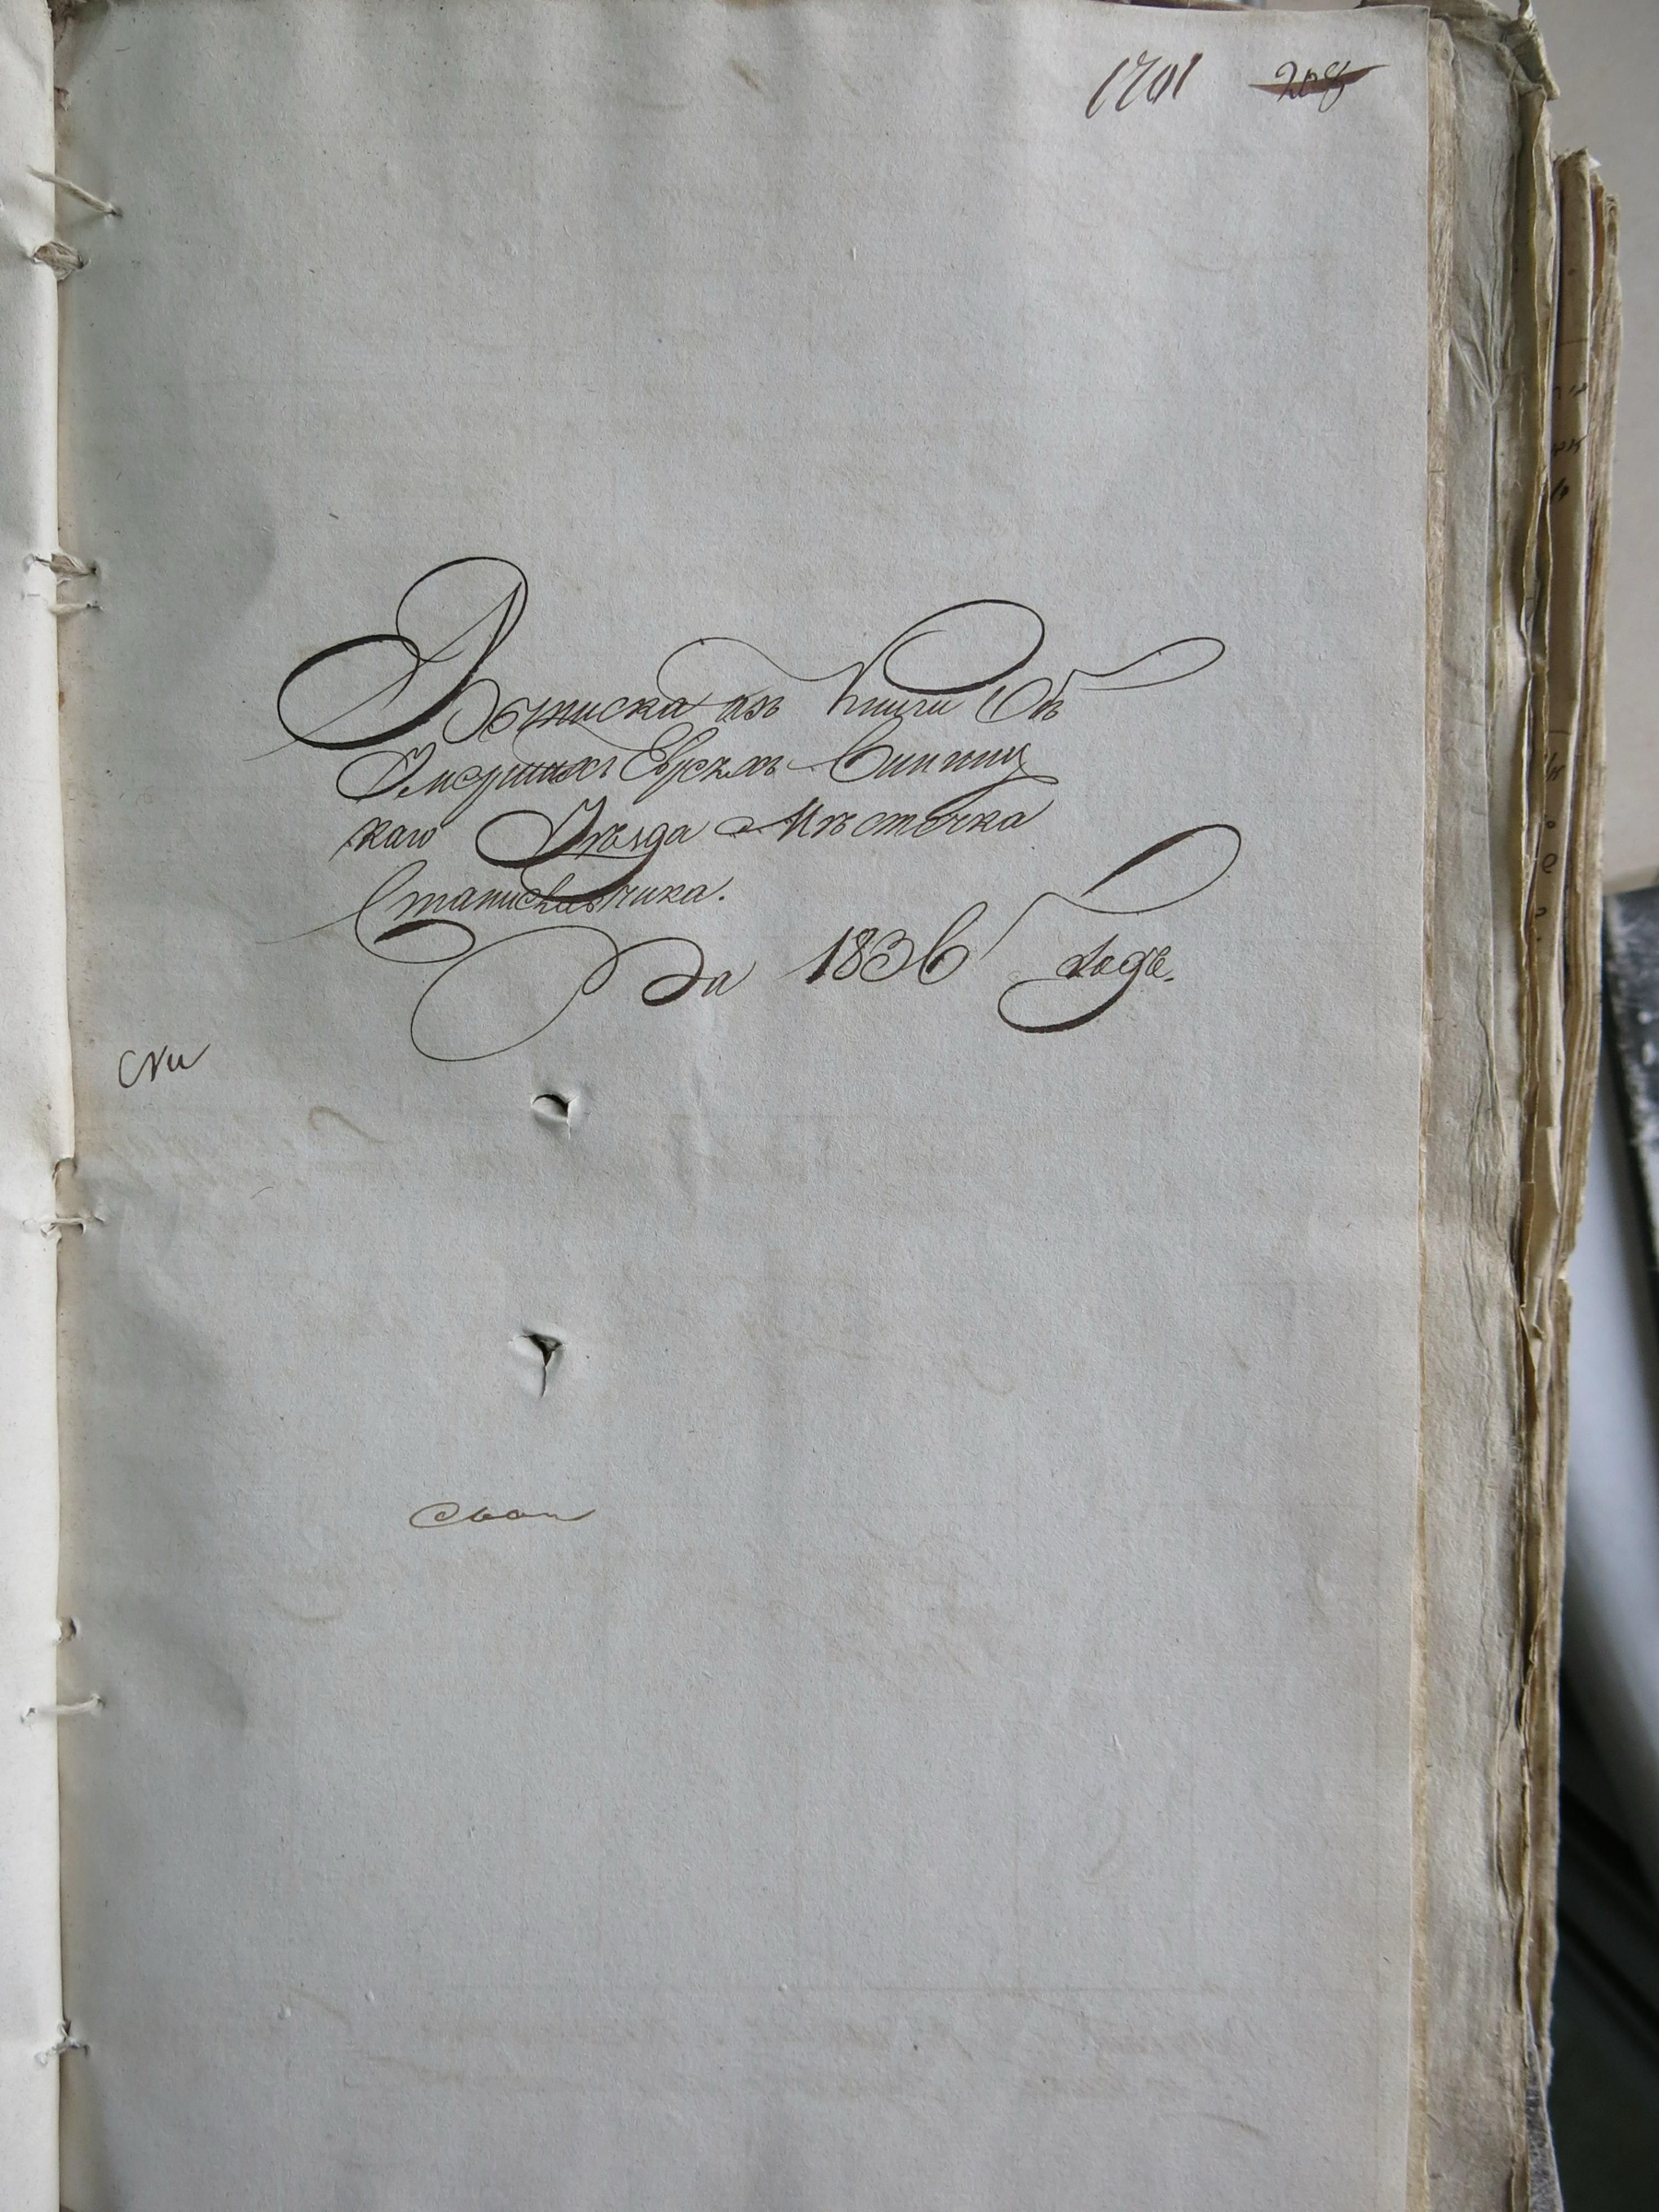 1701 208
Выписка изъ Книги Объ
Умершихъ Евреяхъ Винниц
каго Уѣзда Мѣстечка
Станиславчика.
За 1836 Годъ.